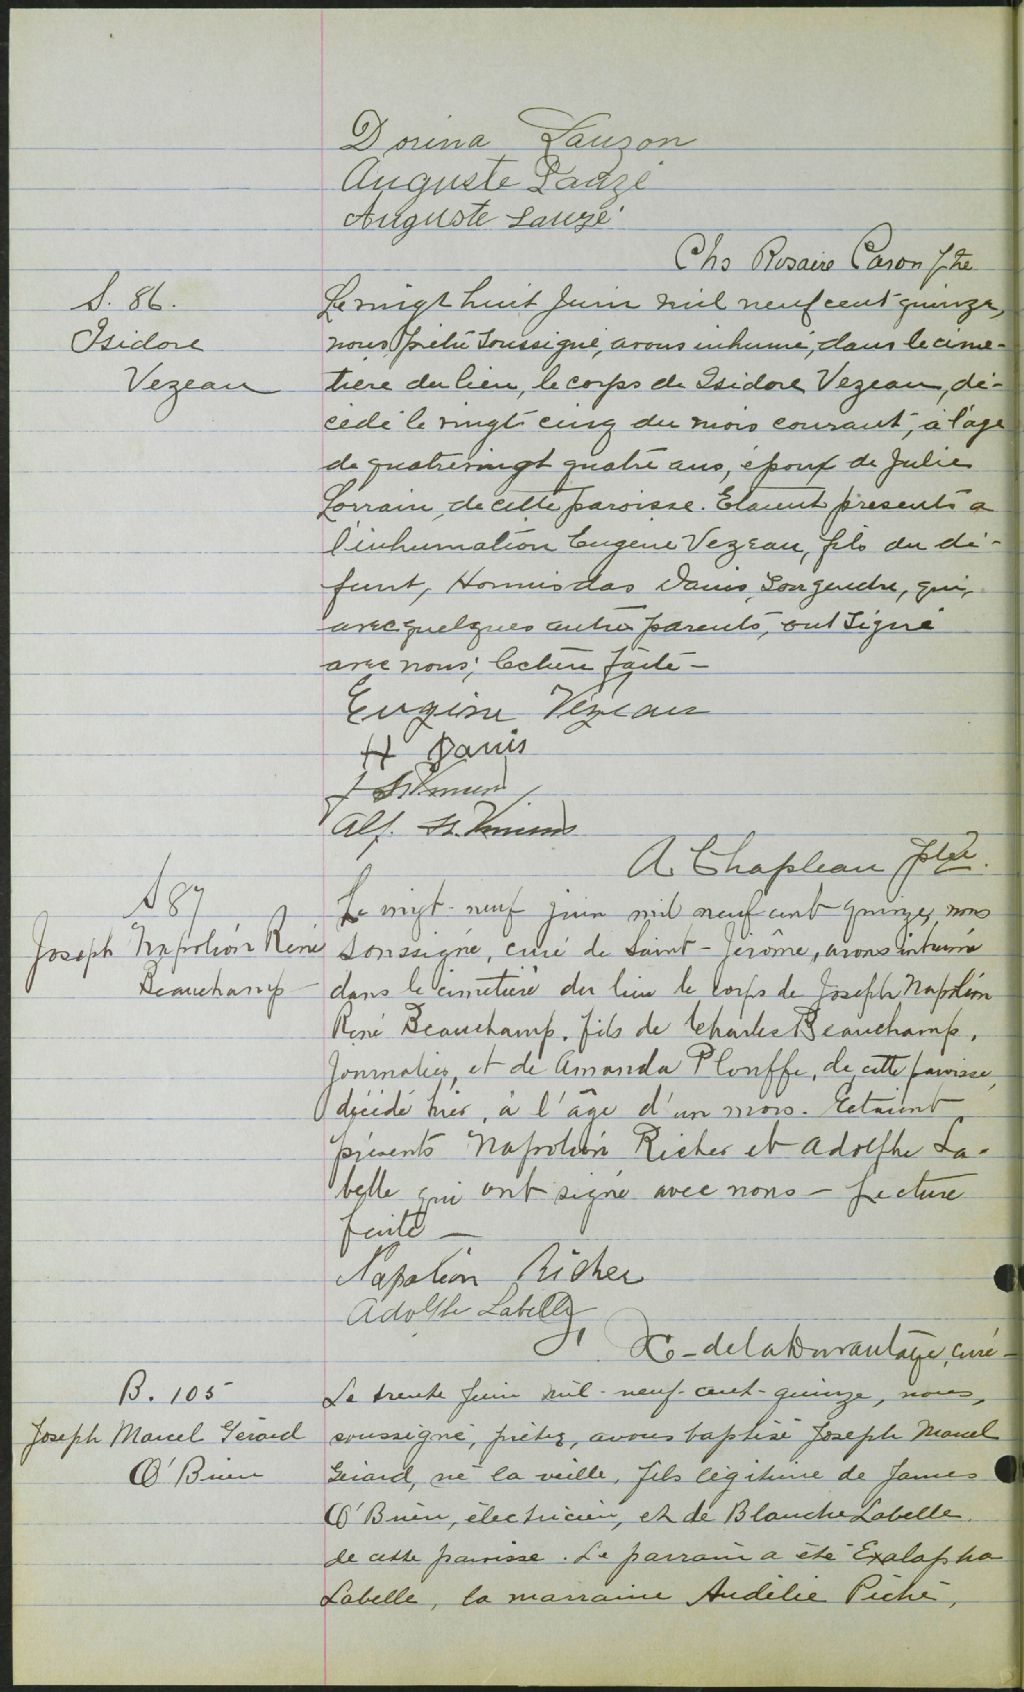 Dorina Lauzon
Auguste Lauzé
Auguste Lauzé
Chs Rosaire Caron Ptre
S. 86.
Isidore
Vezeau
Le vingt huit Juin mil neuf cent quinze,
nous prêtre soussigné, avons inhumé, dans le cime-
tière du lieu, le corps de Isidore Vezeau, dé-
cédé le vingt cinq du mois courant, à l'age
de quatrevingt quatre ans, époux de Julie
Lorrain, de cette paroisse. Etaient presents a
l'inhumation Eugene Vezeau, fils du dé-
funt, Hormisdas Danis, son gendre, qui,
avec quelques autres parents, ont signé
avec nous; lecture faite -
Eugène Vézeau
H Danis
J St
Alf. St.
A Chapleau ptre.
S 87
Joseph Napoléon René
Beauchamp
Le vingt-neuf juin mil neuf cent quinze, nous
soussigné, curé de Saint-Jérôme, avons inhumé
dans le cimetière du lieu le corps de Joseph Napoléon
René Beauchamp, fils de Charles Beauchamp,
journalier, et de Amanda Plouffe, de cette paroisse,
décédé hier, à l'âge d'un mois. Etaient
présents Napoléon Richer et Adolphe La-
belle qui ont signé avec nous - Lecture
faite -
Napoléon Richer
Adolphe Labelle
de la Durantaye, curé -
B. 105
Joseph Marcel Gérard
O'Brien
Le trente Juin mil-neuf-cent-quinze, nous,
soussigné, prêtre, avons baptisé Joseph Marcel
Gérard, né la veille, fils légitime de James
O'Brien, électricien, et de Blanche Labelle
de cette paroisse. Le parrain a été Exalapha
Labelle, la marraine Audélie Piché,